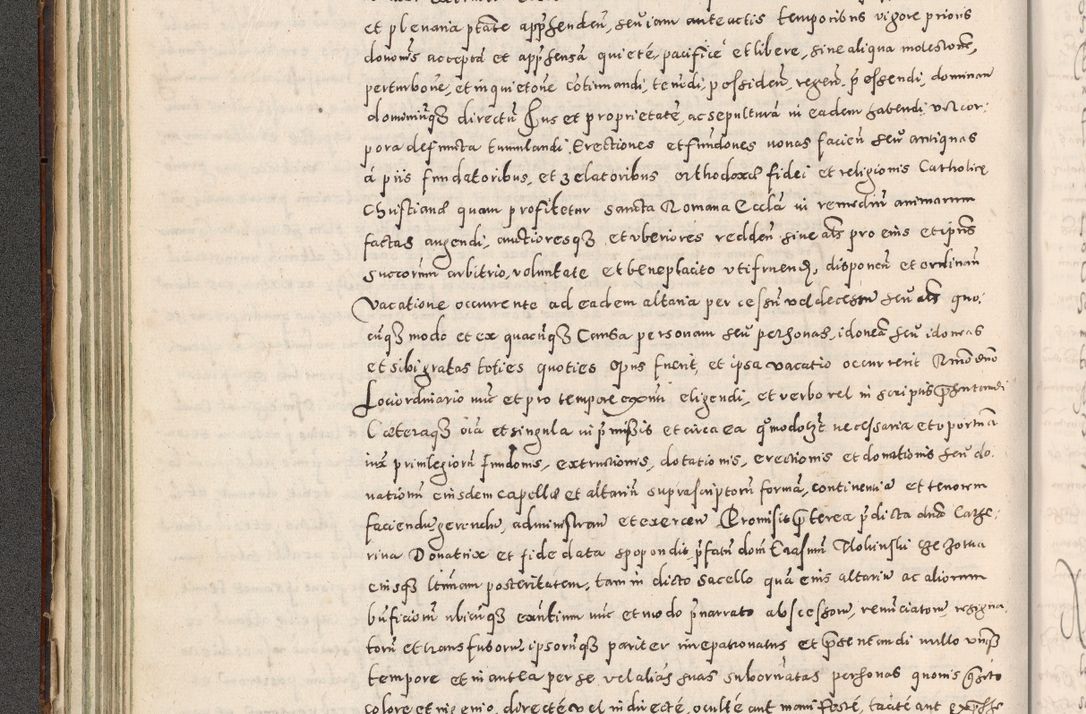 et plenaria ptate apphendeñ, seu iam ante actis temporibus vigore prioris
dononis acceptã et apphensã quietè, pacificè et libere, sine aliqua molestione,
perturbone, et inquietone cotinuandi, tenendi, possideñ, regeñ, pessendi, dominan
dominiūqȝ directū Jus et proprietatē, ac sepulturã in eadem habendi, vel cor:
pora defuncta tumulandi, Erectiones et fundones nonas facieñ seu antiquas
à piis fundatoribus, et zelatoribus orthodoxæ fidei et religionis Catholicę
Christianæ quam profitetur sancta Romana Eccla in remediū animarum
factas augendi, auctioresqȝ et vberiores reddeñ sine als pro eius et ipsius
succorum arbitrio, voluntate et beneplacito vtifrueñ, disponeñ et ordinañ
Vacatione occurrente ad eadem altaria per cessum vel decessum seu als quo:
cūqȝ modo et ex quacūqȝ Causa personam seu personas, idoneã seu idoneas
et sibi gratas toties quoties opus fuerit, et ipsa vacatio occurrerit Rmo dno
Lociordinario nuc et pro tempore exnti eligendi, et verbo vel in scriptis pñtandi
Cæteraqȝ oia et singula in pmissis et circa ea quomodolȝt necessaria et oportuna
iux priuilegiorū fundonis, extructionis, dotationis, erectionis et donationis seu do:
nationū eiusdem capellæ et altariū suprascriptorū formã, continentiã et tenorem
faciendi, gerendi, administrañ et exerceñ Promisitqȝ pterea pdicta dna Cathe:
rina Donatrix et fide data spopondit pfatū dom Erasmū
eiusqȝ ltimam posteritatem, tam in dicto sacello quã eius altariū ac aliorum
bnficiorū ubicūqȝ exntium nuc et modo pnarrato ab cessorū, renuciatorū, resigna:
torū et transfusorū ipsorūqȝ pariter iurepatronatus et psentandi nullo vnqȝ
tempore et in antea per se vel alias suas subornatas personas quouis
colore et ingenio, directè vel indirectè, ocultè aut manifestè, tacitè aut expsse